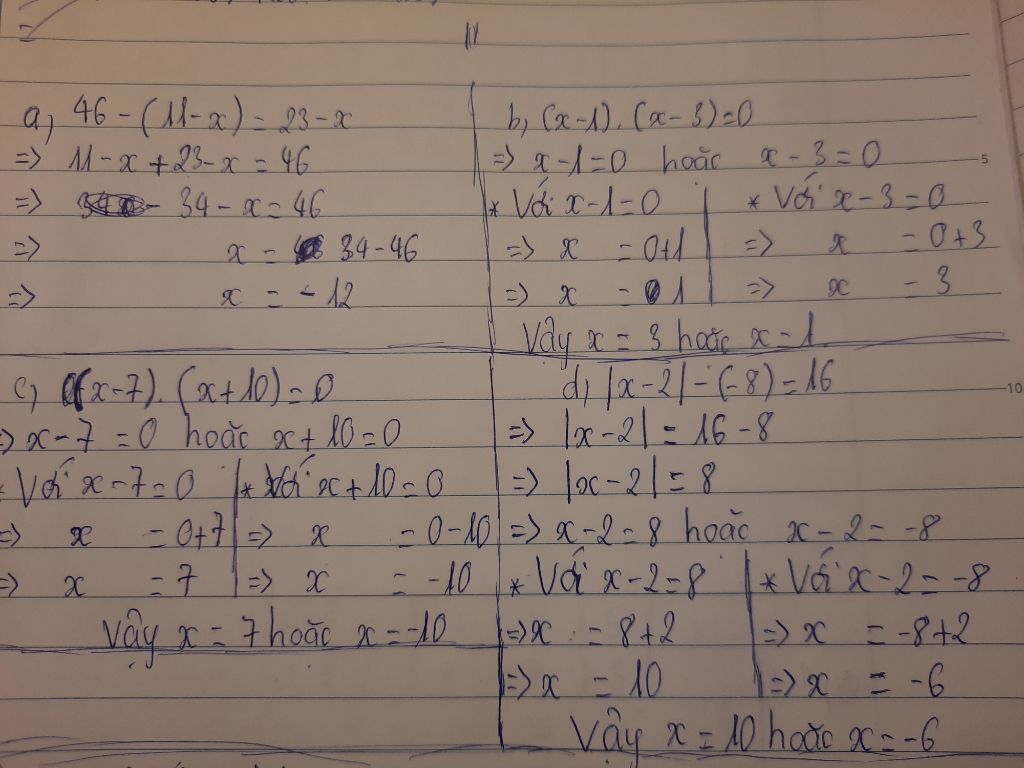 a, 46 - (11 - x) = 23 - x
=> 11 - x + 23 - x = 46
=> 34 - x = 46
=> x = 34 - 46
=> x = - 12
b, (x - 1). (x - 3) = 0
=> x - 1 = 0 hoặc x - 3 = 0
* Với x - 1 = 0
=> x = 0 + 1
=> x = 1
* Với x - 3 = 0
=> x = 0 + 3
=> x = 3
Vậy x = 3 hoặc x = 1
c, (x - 7). (x + 10) = 0
=> x - 7 = 0 hoặc x + 10 = 0
* Với x - 7 = 0
=> x = 0 + 7
=> x = 7
* Với x + 10 = 0
=> x = 0 - 10
=> x = -10
Vậy x = 7 hoặc x = -10
d, |x - 2| - (-8) = 16
=> |x - 2| = 16 - 8
=> |x - 2| = 8
=> x - 2 = 8 hoặc x - 2 = -8
* Với x - 2 = 8
=> x = 8 + 2
=> x = 10
* Với x - 2 = -8
=> x = -8 + 2
=> x = -6
Vậy x = 10 hoặc x = -6
5
10